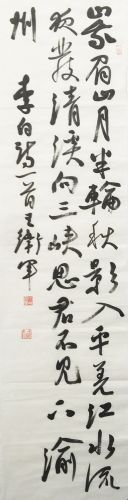 峩眉山月半輪秋影入平羌江水流
夜發清溪向三峽思君不見下渝
州
李白詩一首王衛軍